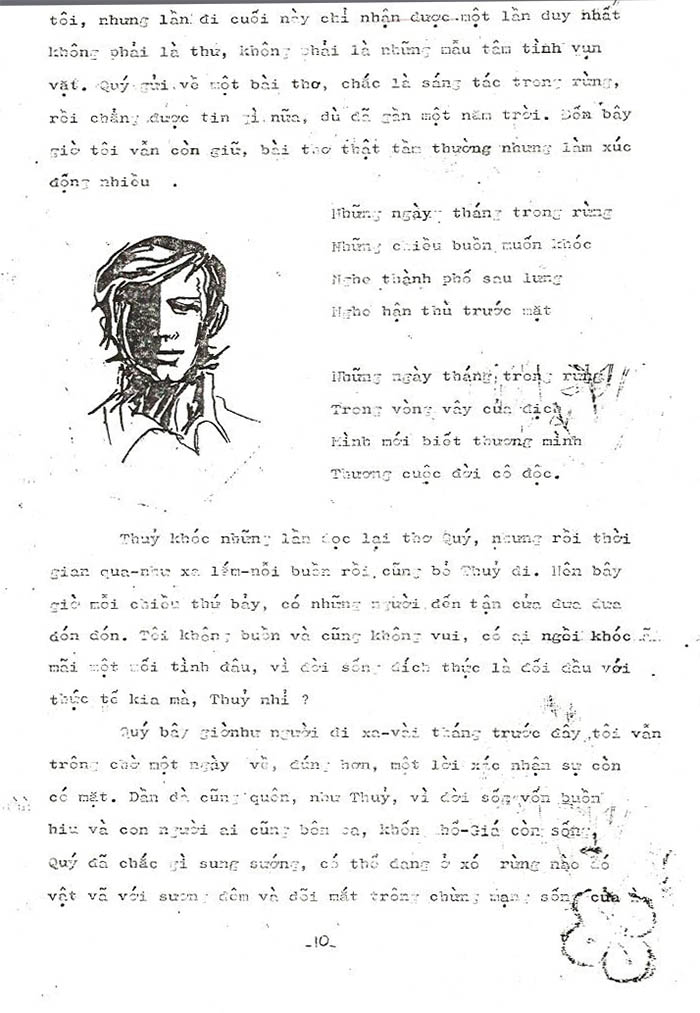 tôi, nhưng lần đi cuối này chỉ nhận được một lần duy nhất
không phải là thư, không phải là những mẩu tâm tình vụn
vặt. Quý gửi về một bài thơ, chắc là sáng tác trong rừng,
rồi chẳng được tin gì nữa, dù đã gần một năm trời. Đến bây
giờ tôi vẫn còn giữ, bài thơ thật tầm thường nhưng làm xúc
động nhiều .
Những ngày tháng trong rừng
Những chiều buồn muốn khóc
Nghe thành phố sau lưng
Nghe hận thù trước mặt
Những ngày tháng trong rừng
Trong vòng vây của địch
Mình mới biết thương mình
Thương cuộc đời cô độc.
Thuỷ khóc những lần đọc lại thơ Quý, nhưng rồi thời
gian qua-như xa lắm-nỗi buồn rồi cũng bỏ Thuỷ đi. Nên bây
giờ mỗi chiều thứ bảy, có những người đến tận cửa đưa đưa
đón đón. Tôi không buồn và cũng không vui, có ai ngồi khóc
mãi một mối tình đâu, vì đời sống đích thực là đối đầu với
thực tế kia mà, Thuỷ nhỉ ?
Quý bây giờnhư người đi xa-vài tháng trước đây tôi vẫn
trông chờ một ngày về, đúng hơn, một lời xác nhận sự còn
có mặt. Dần dà cũng quên, như Thuỷ, vì đời sống vốn buồn
hiu và con người ai cũng bôn ba, khốn khổ-Giá còn sống,
Quý đã chắc gì sung sướng, có thể đang ở xó rừng nào đó
vật vã với sương đêm và đôi mắt trông chừng mạng sống của
-10-